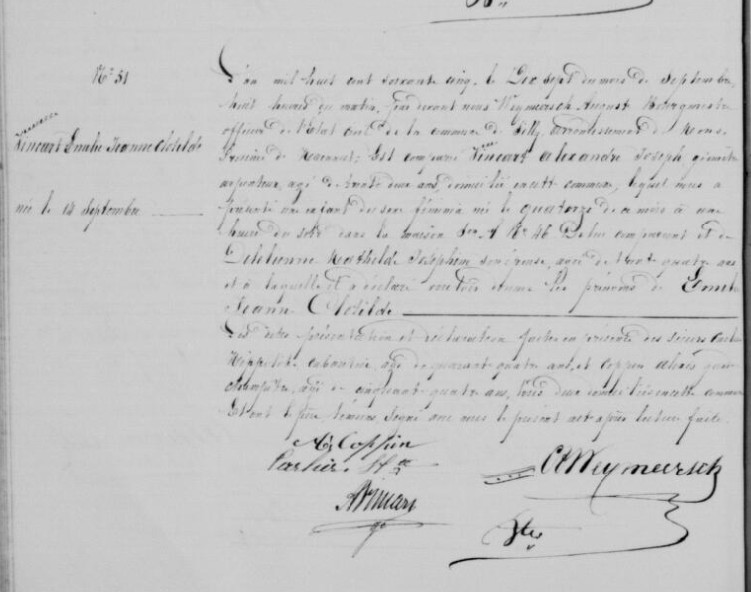 N° 51
Vincart Emilie Jeanne Clotilde
née le 14 Septembre
L'an mil huit cent soixante cinq, le Dix Sept du mois de Septembre,
huit heures du matin, par devant nous Weymeersch August Bourgmestre
officier de l'Etat civil de la commune de arrondissement de Mons
Province de Hainaut, Est comparu Vincart Alexandre Joseph géomètre
arpenteur, agé de trente deux ans, domicilié en cette commune, lequel nous a
présenté un enfant du sexe féminin né le quatorze de ce mois à une
heure du soir dans la maison Son A N° 46 De lui comparant et de
Delebenne Mathilde Joséphine son épouse, agée de trente quatre ans
et à laquelle il a déclaré vouloir donner les prénoms de Emilie
Jeanne Clotilde
Les dites présentation et déclaration faites en présence des sieurs
Hippolite cabaretier, agé de quarante quatre ans, et Coppin Alexis garde
champêtre, agé de cinquante quatre ans, tous deux domiciliés en cette commune
Et ont le père, témoins, signé avec nous le présent acte après lecture faite.
A. Coppin
Cartier H.te
A Vincart
A Weymeersch